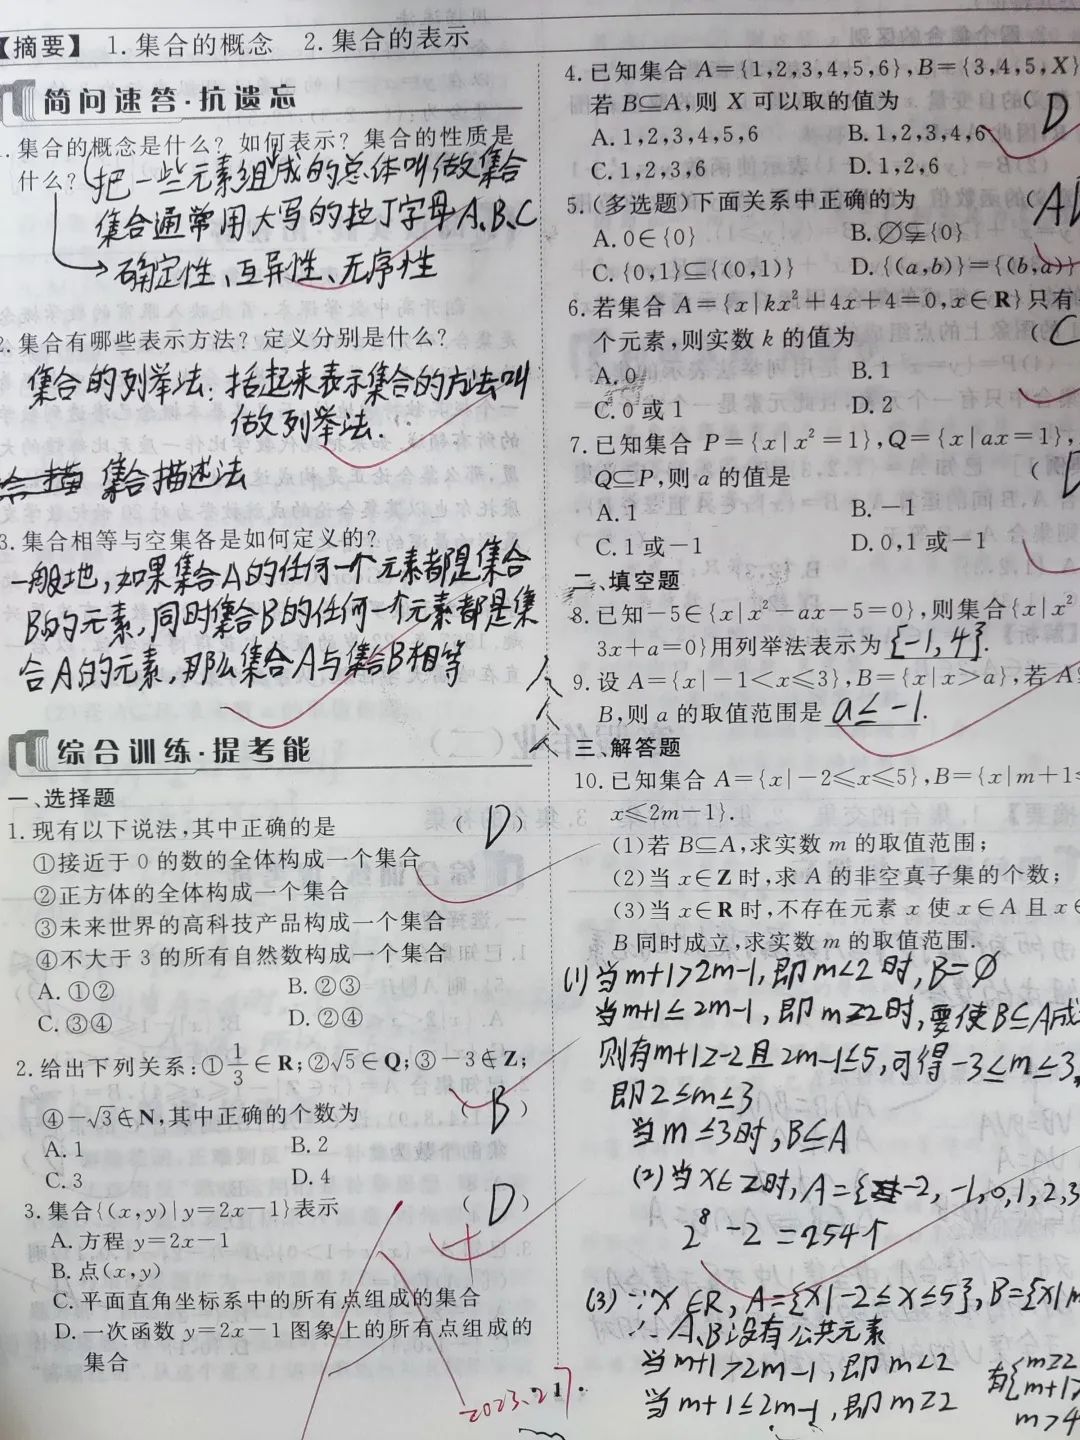 【摘要】 1.集合的概念 2.集合的表示
简问速答·抗遗忘
1.集合的概念是什么？如何表示？集合的性质是
什么？
把一些元素组成的总体叫做集合
集合通常用大写的拉丁字母A、B、C
确定性、互异性、无序性
2.集合有哪些表示方法？定义分别是什么？
集合的列举法：括起来表示集合的方法叫
做列举法.
集合描述法
3.集合相等与空集各是如何定义的？
一般地，如果集合A的任何一个元素都是集合
B的元素，同时集合B的任何一个元素都是集
合A的元素，那么集合A与集合B相等
综合训练·提考能
一、选择题
1.现有以下说法,其中正确的是 ( D )
①接近于0的数的全体构成一个集合
②正方体的全体构成一个集合
③未来世界的高科技产品构成一个集合
④不大于3的所有自然数构成一个集合
A.①② B.②③
C.③④ D.②④
2.给出下列关系:①1/3∈R;②√5∈Q;③-3∉Z;
④-√3∉N,其中正确的个数为 ( B )
A.1 B.2
C.3 D.4
3.集合{(x,y)|y=2x-1}表示 ( D )
A.方程 y=2x-1
B.点(x,y)
C.平面直角坐标系中的所有点组成的集合
D.一次函数 y=2x-1 图象上的所有点组成的
集合
2023.2.7
·1·
4.已知集合 A={1,2,3,4,5,6},B={3,4,5,X}
若 B⊆A,则 X 可以取的值为 ( D
A.1,2,3,4,5,6 B.1,2,3,4,6
C.1,2,3,6 D.1,2,6
5.(多选题)下面关系中正确的为 ( AB
A.0∈{0} B.∅⫋{0}
C.{0,1}⊆{(0,1)} D.{(a,b)}={(b,a)}
6.若集合 A={x|kx²+4x+4=0,x∈R}只有
个元素,则实数 k 的值为 ( C
A.0 B.1
C.0或1 D.2
7.已知集合 P={x|x²=1},Q={x|ax=1},
Q⊆P,则 a 的值是 ( D
A.1 B.-1
C.1或-1 D.0,1或-1
二、填空题
8.已知-5∈{x|x²-ax-5=0},则集合{x|x²
3x+a=0}用列举法表示为 {-1,4}.
9.设 A={x|-1<x≤3},B={x|x>a},若 A
B,则 a 的取值范围是 a≤-1.
三、解答题
10.已知集合 A={x|-2≤x≤5},B={x|m+1≤
x≤2m-1}.
(1)若 B⊆A,求实数 m 的取值范围;
(2)当 x∈Z时,求 A 的非空真子集的个数;
(3)当 x∈R 时,不存在元素 x 使 x∈A 且 x∈
B 同时成立,求实数 m 的取值范围.
(1)当m+1>2m-1,即m<2时,B=∅
当m+1≤2m-1,即m≥2时,要使B⊆A成
则有m+1≥-2且2m-1≤5,可得-3≤m≤3,
即2≤m≤3
当m≤3时,B⊆A
(2)当x∈Z时,A={-2,-1,0,1,2,3
2⁸-2=254个
(3)∵x∈R,A={x|-2≤x≤5},B={x|m
∴A、B没有公共元素
当m+1>2m-1,即m<2
当m+1≤2m-1,即m≥2
有{m≥2
m+1>
m>4